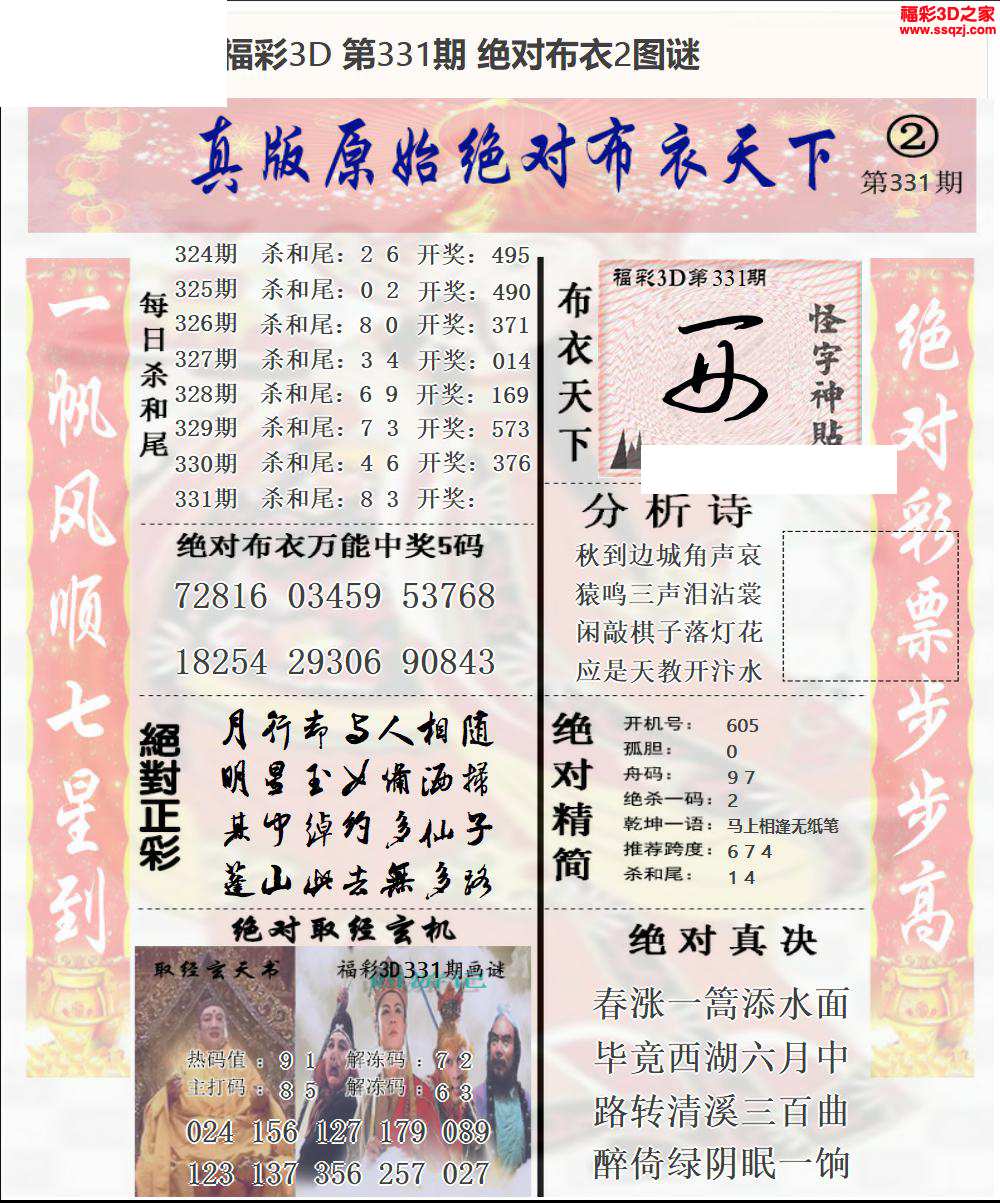 福彩3D之家
www.ssqzj.com
福彩3D 第331期 绝对布衣2图谜
真版原始绝对布衣天下
②
第331期
一帆风顺七星到
每日杀和尾
324期 杀和尾：2 6 开奖：495
325期 杀和尾：0 2 开奖：490
326期 杀和尾：8 0 开奖：371
327期 杀和尾：3 4 开奖：014
328期 杀和尾：6 9 开奖：169
329期 杀和尾：7 3 开奖：573
330期 杀和尾：4 6 开奖：376
331期 杀和尾：8 3 开奖：
绝对布衣万能中奖5码
72816 03459 53768
18254 29306 90843
絕對正彩
月行却与人相随
明星玉女备洒掃
其中绰约多仙子
蓬山此去無多路
绝对取经玄机
取经玄天书
福彩3D331期画谜
热码值：9 1 解冻码：7 2
主打码：8 5 解冻码：6 3
024 156 127 179 089
123 137 356 257 027
布衣天下
福彩3D第331期
怪字神貼
分析诗
秋到边城角声哀
猿鸣三声泪沾裳
闲敲棋子落灯花
应是天教开汴水
绝对精简
开机号：605
孤胆：0
舟码：9 7
绝杀一码：2
乾坤一语：马上相逢无纸笔
推荐跨度：6 7 4
杀和尾：1 4
绝对真决
春涨一篙添水面
毕竟西湖六月中
路转清溪三百曲
醉倚绿阴眠一饷
绝对彩票步步高